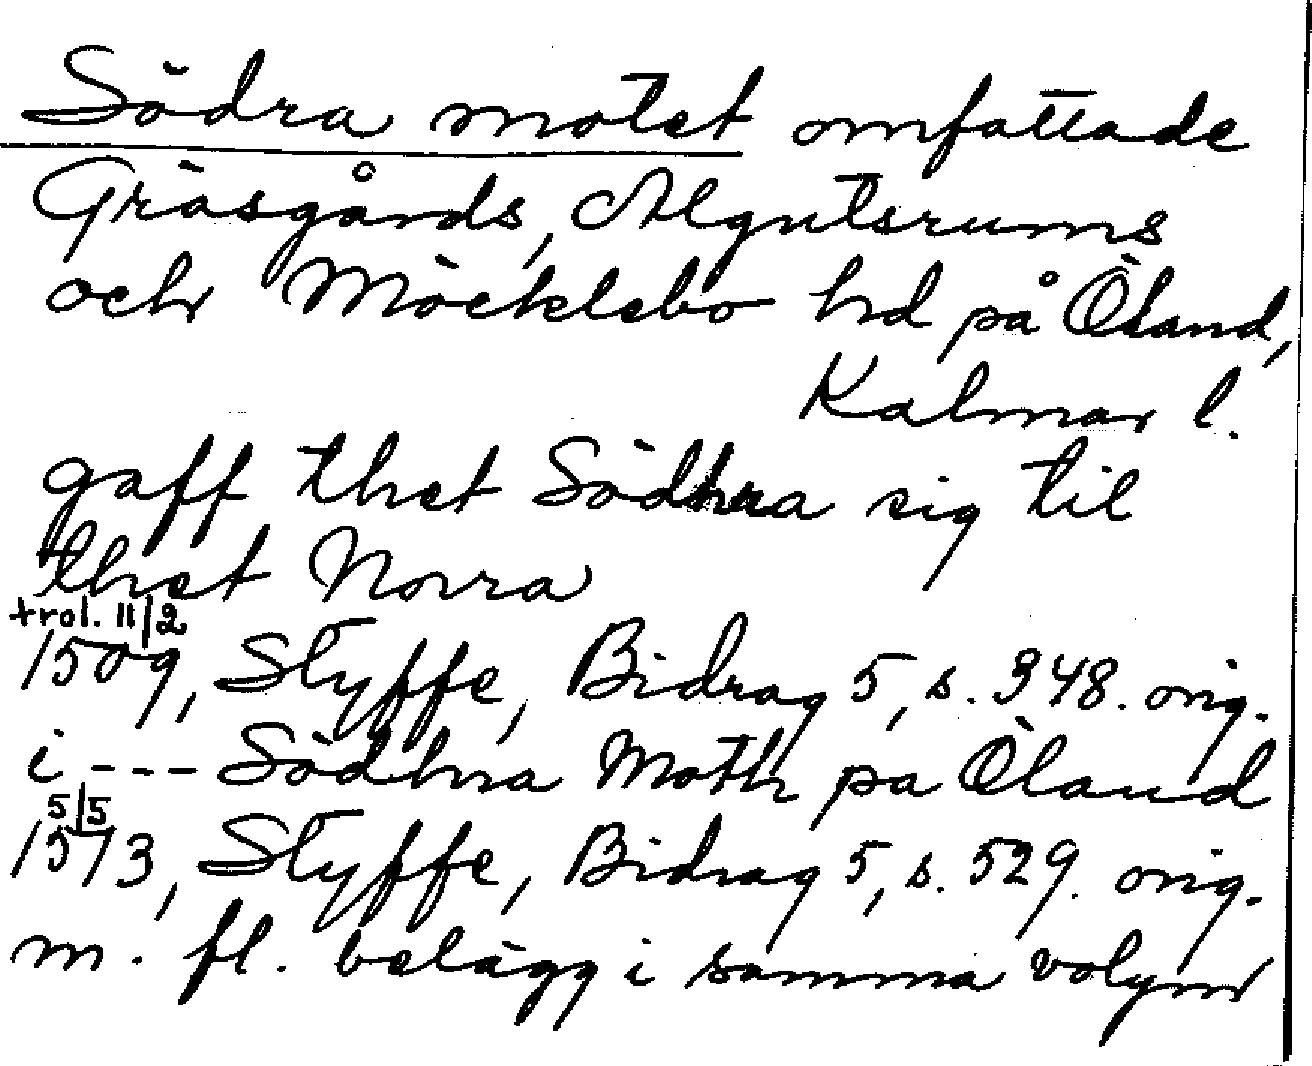 Södra motet omfattade
Gräsgårds, Algutsrums
och Möcklebo hd på Öland,
Kalmar l.
gaff thet Södhra sig til
thet Norra
trol. 11/2
1509, Styffe, Bidrag 5, s. 348. orig.
i --- Södhra Moth pa Öland
5/5
1513, Styffe, Bidrag 5, s. 529. orig.
m. fl. belägg i samma volym